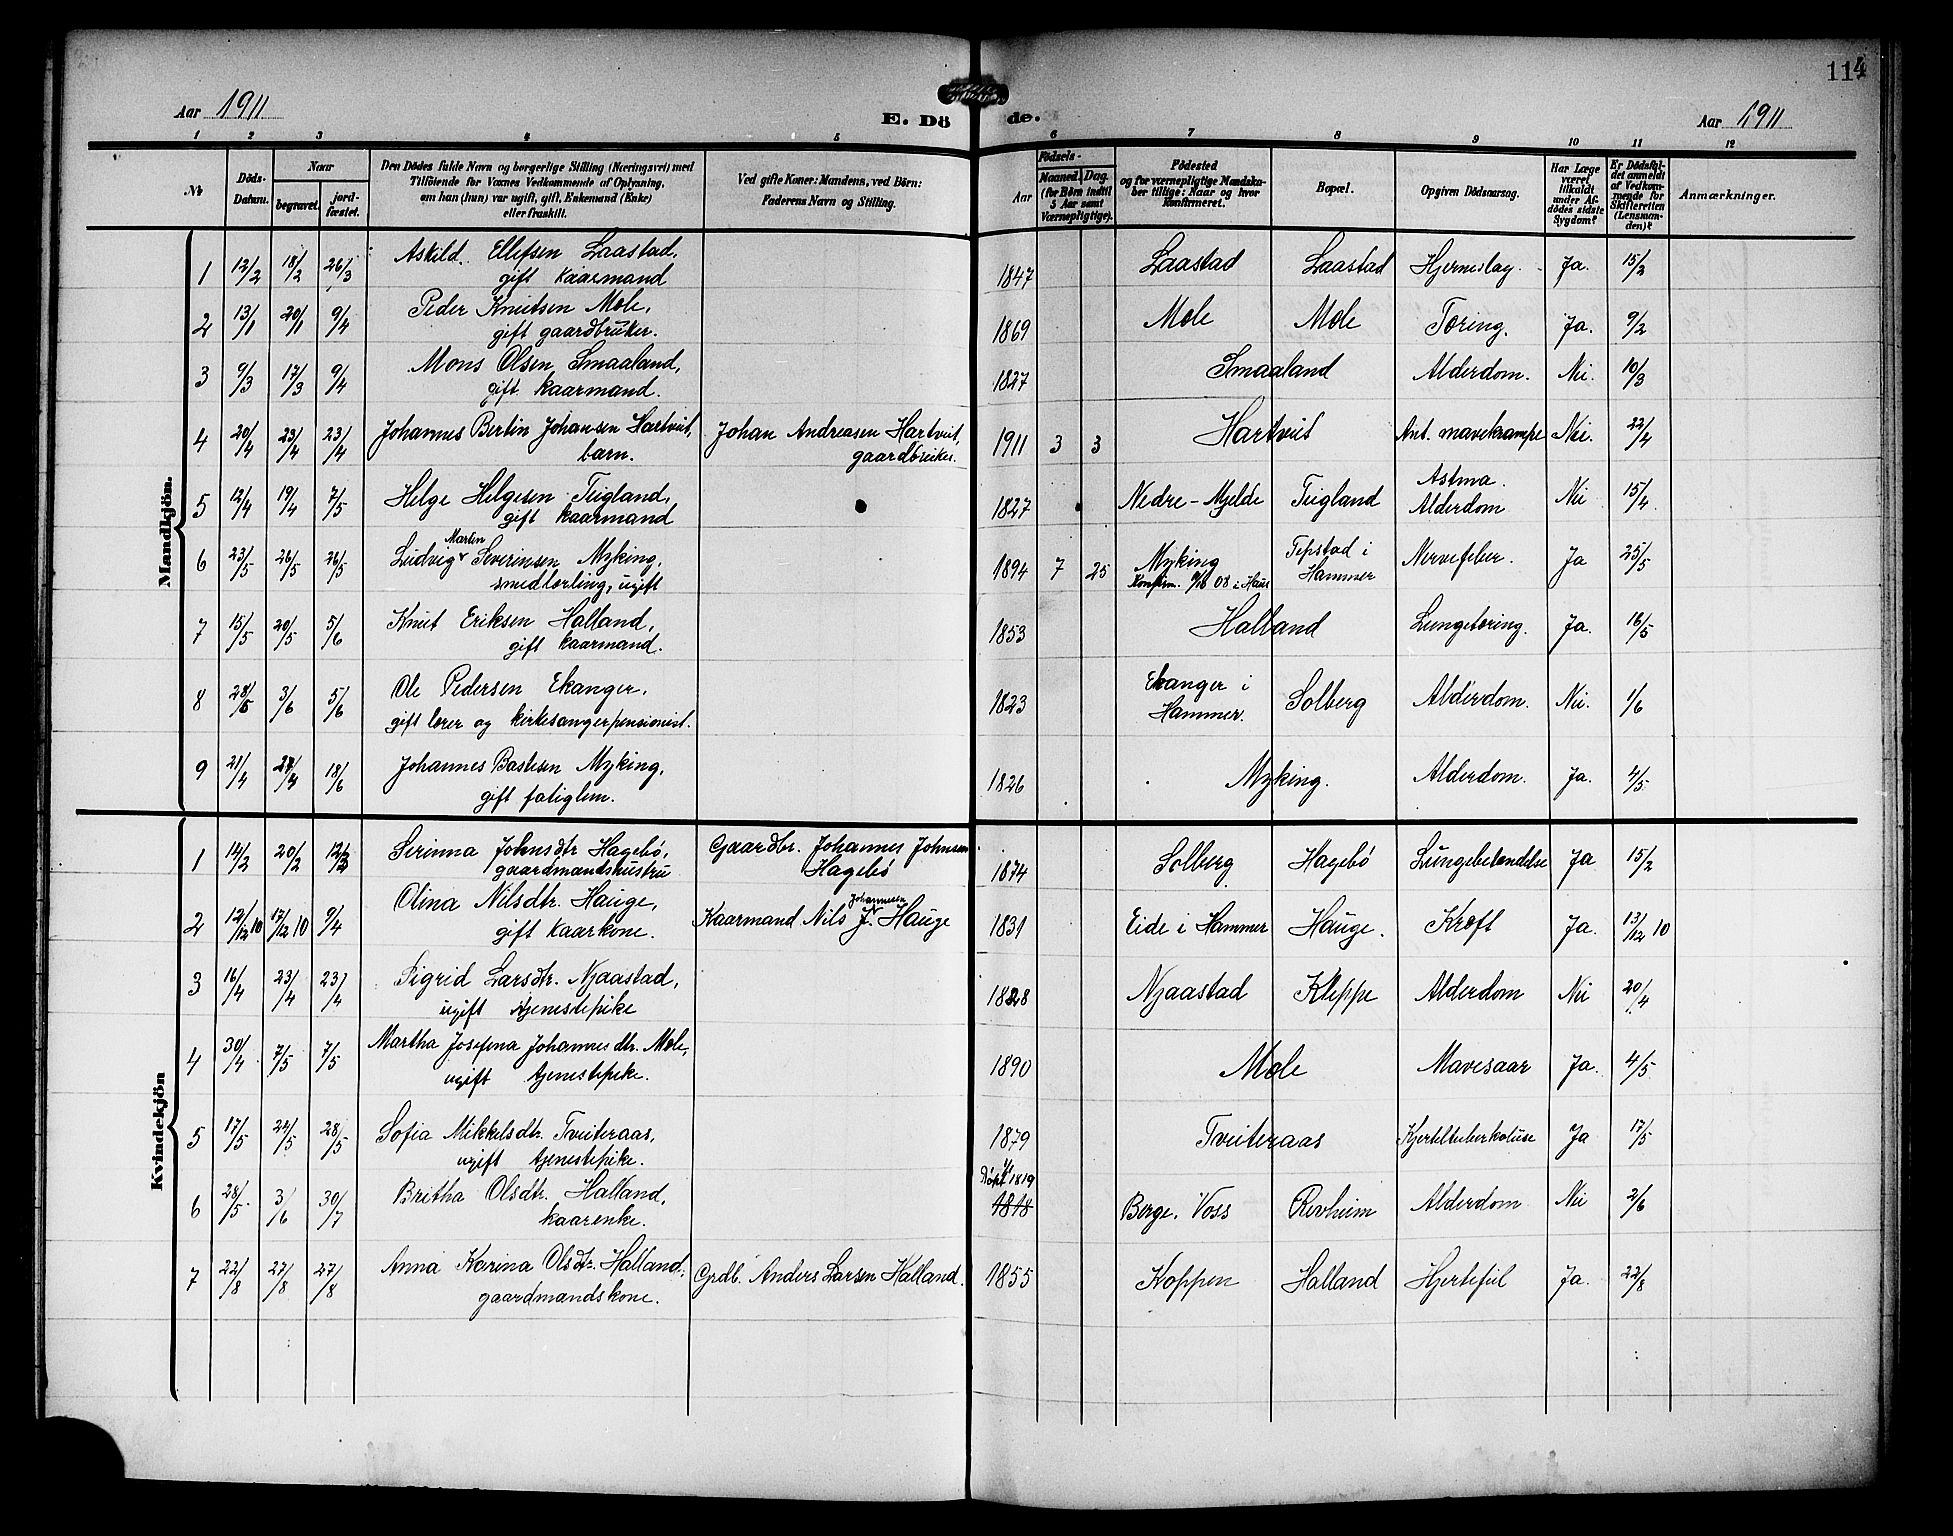 114
Aar 1911
E. Dö
de.
Aar 1911
1 2 3 4 5 6 7 8 9 10 11 12
№
Döds-Datum.
Naar
begravet.
jord-fæstet.
Den Dödes fulde Navn og borgerlige Stilling (Næringsvei) med
Tilföiende for Voxnes Vedkommende af Oplysning,
om han (hun) var ugift, gift, Enkemand (Enke)
eller fraskilt.
Ved gifte Koner: Mandens, ved Börn:
Faderens Navn og Stilling.
Födsels-
Aar
Maaned. Dag.
(for Börn indtil
5 Aar samt
Værnepligtige).
Födested
og for værnepligtige Mandska-
ber tillige: Naar og hvor
konfirmeret.
Bopæl.
Opgiven Dödsaarsag.
Har Læge
været
tilkaldt
under Af-
dödes sidste
Sygdom?
Er Dödsfal-
det anmeldt
af Vedkom-
mende for
Skifteretten
(Lensman-
den)?
Anmærkninger.
Mandkjön.
1 12/2 18/2 26/3 Askild Ellefsen Laastad, 1847 Laastad Laastad Hjerneslag. Ja. 15/2
gift kaarmand
2 13/1 20/1 9/4 Peder Knutsen Mole, 1869 Mole Mole Tæring. Ja. 9/2
gift gaardbruker.
3 9/3 17/3 9/4 Mons Olsen Smaaland, 1827 Smaaland Alderdom. Nei. 10/3
gift kaarmand.
4 20/4 23/4 23/4 Johannes Bertin Johansen Hartveit, Johan Andreasen Hartveit, 1911 3 3 Hartveit Ant. mavekrampe Nei. 22/4
barn. gaardbruker.
5 12/4 19/4 7/5 Helge Helgesen Teigland, 1827 Nedre-Mjelde Teigland Astma. Alderdom Nei 15/4
gift kaarmand
6 23/5 26/5 26/5 Ludvig Martin Severinsen Myking, 1894 7 25 Myking Tepstad i Hammer Nervefeber. Ja 25/5
smedlærling, ugift Konfirm. 08 i Haus
7 15/5 20/5 5/6 Knut Eriksen Halland, 1853 Halland Lungetæring. Ja. 16/5
gift kaarmand.
8 28/5 3/6 5/6 Ole Pedersen Ekanger, 1823 Ekanger i Hammer. Solberg Alderdom. Nei. 1/6
gift lærer og kirkesangerpensionist.
9 21/4 18/6 Johannes Bastesen Myking, 1826 Myking. Alderdom. Ja. 4/5
gift fatiglem.
Kvindekjön
1 14/2 20/2 Serinna Johnsdtr Hagebö, Gaardbr. Johannes Johnsen 1874 Solberg Hagebö Lungebetændelse Ja 15/2
gaardmandshustru Hagebö
2 12/12 10 17/12 10 9/4 Olina Nilsdtr. Hauge, Kaarmand Nils J. Johannesen Hauge 1831 Eide i Hammer Hauge. Kræft Ja. 13/12 10
gift kaarkone.
3 16/4 23/4 23/4 Sigrid Larsdtr. Njaastad, 1828 Njaastad Kleppe Alderdom Nei 20/4
ugift tjenestepike
4 30/4 7/5 7/5 Martha Josefina Johannesdtr. Mole, 1890 Mole Mavesaar Ja. 4/5
ugift tjenestepike.
5 17/5 22/5 28/5 Sofia Mikkelsdtr. Tveiteraas, 1879 Tveiteraas Kjerteltuberkulose Ja 17/5
ugift tjenestepike.
6 28/5 3/6 30/7 Britha Olsdtr. Halland, Döpt 1819 1818 Berge, Voss Revheim Alderdom Nei 2/6
kaarenke.
7 22/8 27/8 27/8 Anna Karina Olsdtr. Halland, Grdb. Anders Larsen Halland. 1855 Koppen Halland Hjertefeil Ja. 22/8
gaardmandskone.